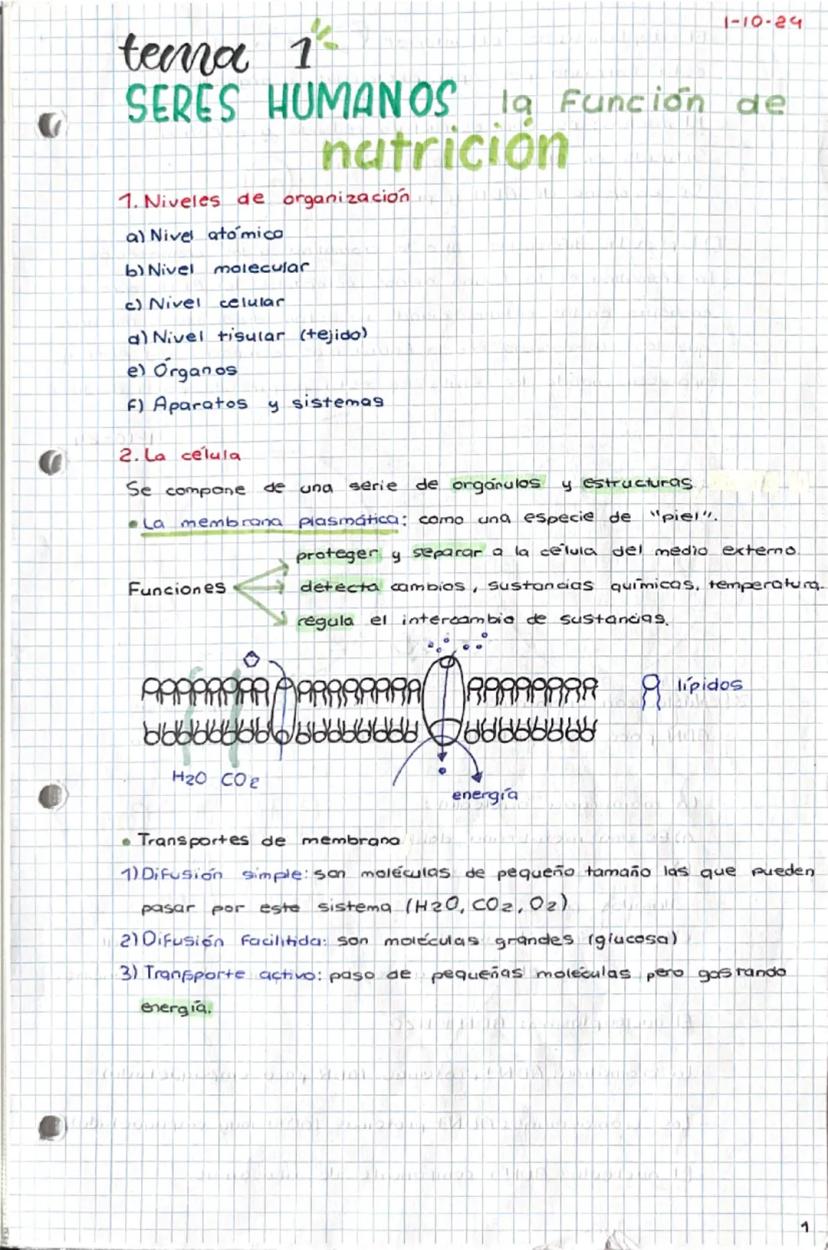 1-10-24
tema 1
SERES HUMANOS la Función de
nutrición
1. Niveles de organización
a) Nivel atómico
b) Nivel molecular
c) Nivel celular
d) Nivel tisular (tejido)
e) Órganos
F) Aparatos y sistemas
2. La célula
Se compone de una serie de orgánulos y estructuras
• La membrana plasmática: como una especie de "piel".
proteger y separar a la célula del medio externo.
Funciones detecta cambios, sustancias químicas, temperatura.
regula el intercambio de sustancias.
lípidos
H2O CO2
energía
• Transportes de membrana
1) Difusión simple: son moléculas de pequeño tamaño las que pueden
pasar por este sistema (H2O, CO2, O2)
2) Difusión Facilitida: son moléculas grandes (glucosa)
3) Transporte activo: paso de pequeñas moléculas pero gastando
energía.
1